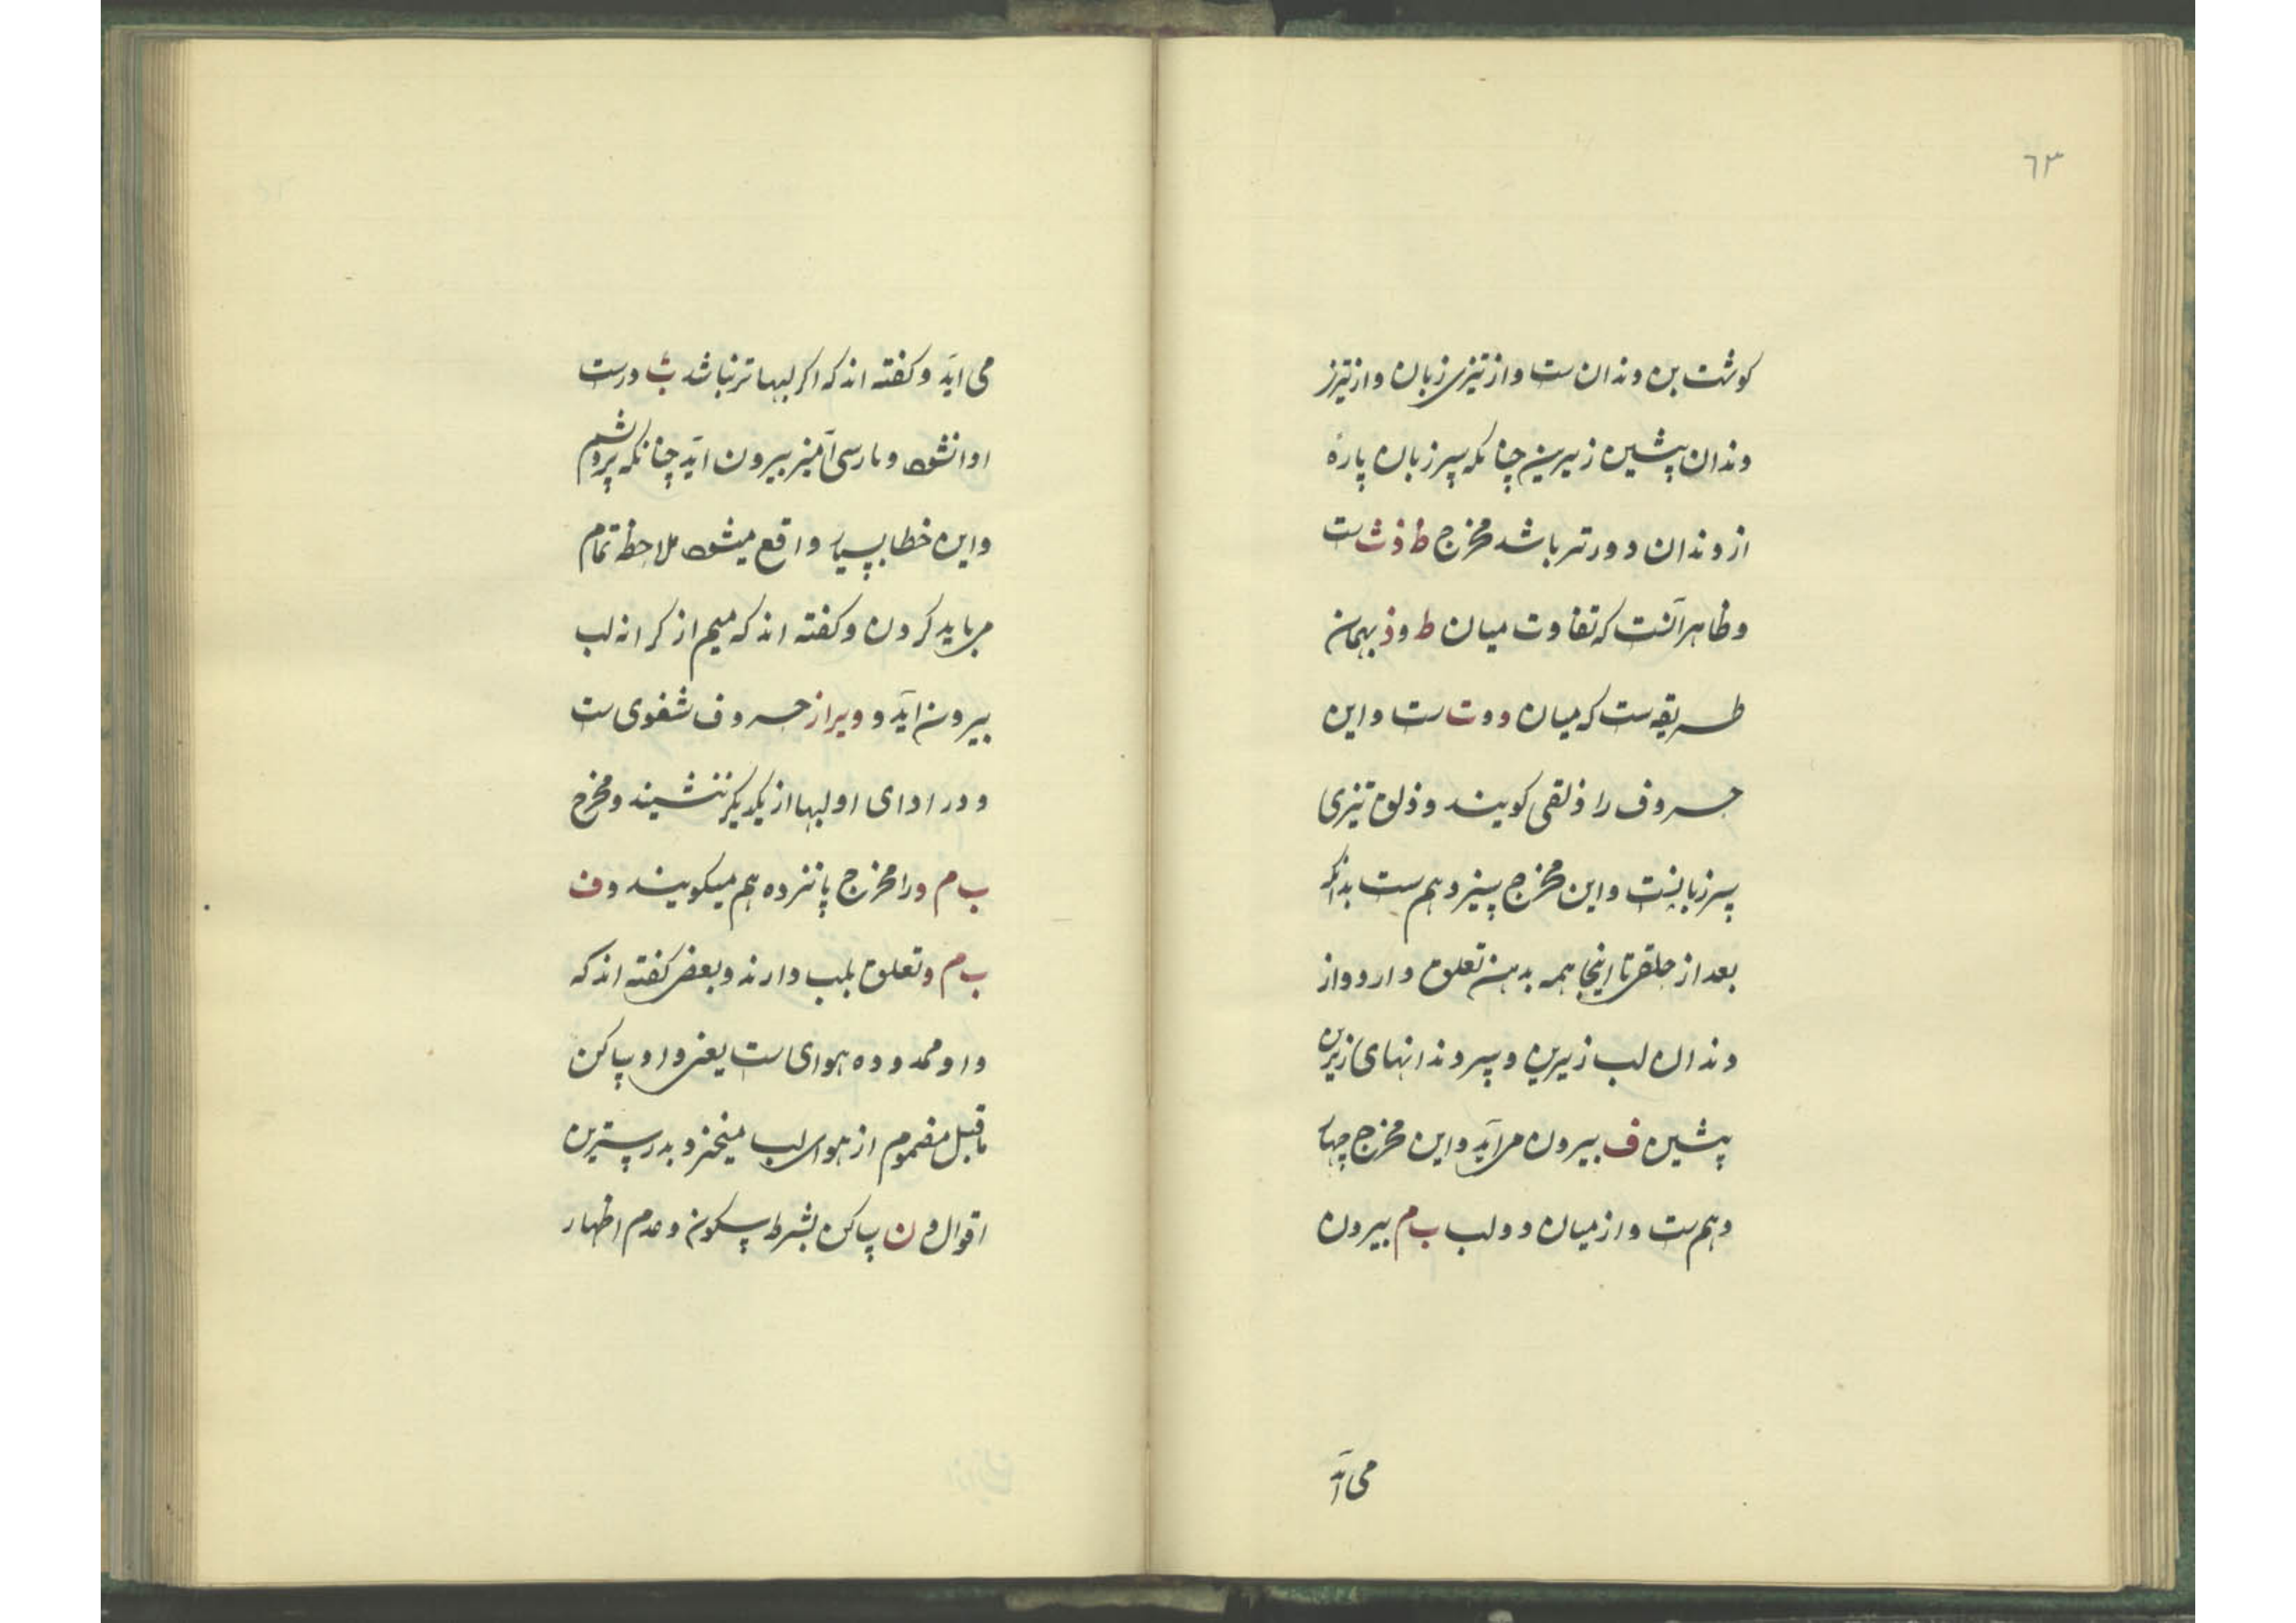 ٦٣
کوشت بن دندان ست و از تیزی زبان و از تیزی
دندان پیشین زیرین چنانکه سر زبان پارهٔ
از دندان دورتر باشد مخرج ظ ذ ث ست
و ظاهر آنست که تفاوت میان ظ و ذ بهمان
طریقه ست که میان د و ت ست و این
حروف را ذلقی کویند و ذلق تیزی
سر زبانست و این مخرج سیزدهم ست بدانکه
بعد از حلقی تا اینجا همه بدهن تعلق دارد و از
دندان لب زیرین و سر دندانهای زیرین
پیشین ف بیرون می آید و این مخرج چهار
دهم ست و از میان دو لب ب م بیرون
می آید
می اید و کفته اند که اکر لبها تر نباشد ب درست
ادا نشود و پارسی آمیز بیرون آید چنانکه
و این خطا بسیار واقع میشود ملاحظه تمام
می باید کردن و کفته اند که میم از کرانه لب
بیرون آید و و نیز از حروف شفوی ست
و در ادای او لبها از یکدیکر ننشیند و مخرج
ب م و را مخرج پانزدهم میکویند و ف
ب م و تعلق بلب دارند و بعضی کفته اند که
واو ممدوده هوای ست یعنی واو ساکن
ماقبل مضموم از هوای لب میخیزد و بدرستیرین
اقوال و ن ساکن بشرط سکون و عدم اظهار